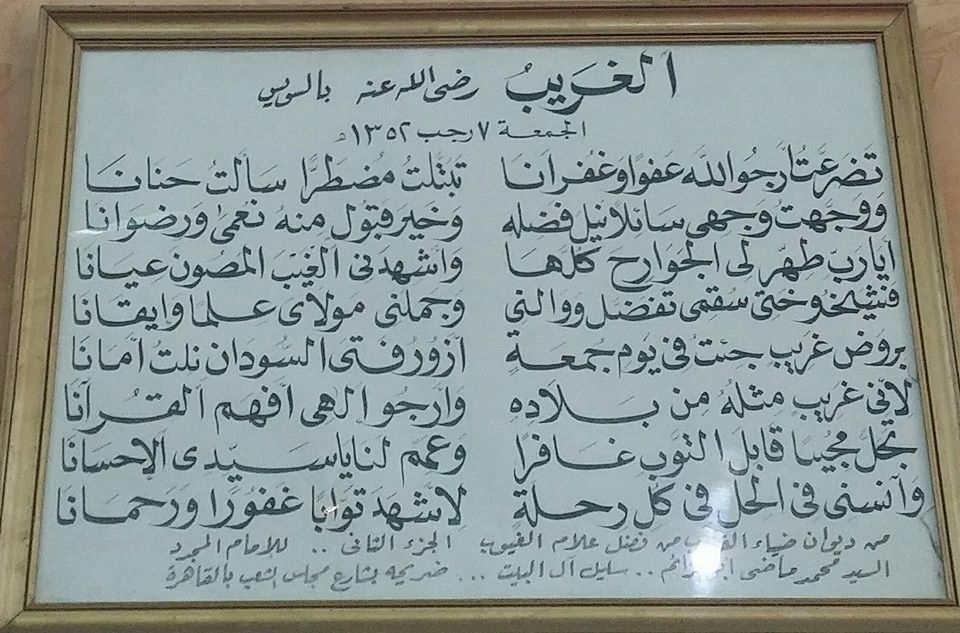 الغَريبُ رضى الله عنه بالسويس
الجمعة ٧ رجب ١٣٥٢هـ
تضَرعَّتُ أرجُو اللَّه عَفوًا وغُفرَانَا تبَتَّلتُ مُضطَرًّا سَألتُ حَنانَا
ووجَّهتُ وَجهى سَائلًا نيل فضله وخَير قبَوُل منهُ نعُمىٰ وَرضوَانَا
أيَاربّ طهّر لى الجوَارح كلّهَا وَأشهدنى الغَيبَ المصُون عيَانَا
سُقمى تفضَل ووالنى وَجملنى مولاى عِلمًا وإيقَانَا
بروَض غَريب جئتُ فى يَوم جُمعَةٍ أزوُر فتى السُّودَان نلتُ أمَانَا
لأنى غَريبٌ مثلهُ مِن بَلَادِهِ وَأرجُو إلهى أفهَم القُرآنَا
تجَلَّ مجُيبًا قابلَ التَّوبِ غَافرًا وَعمّم لنَا يَا سَيّدى الإحسَانَا
وَآنسنى فى الحل فى كلّ رحلَةٍ لأشهَدَ توَابًا غَفوُرًا وَرَحمَانَا
من ديوان ضياء القلوب من فضل علام الغيوب الجزء الثانى .. للامام المجدد
السيد محمد ماضى أبو العزائم .. سليل آل البيت ... ضريحه بشارع مجلس الشعب بالقاهرة